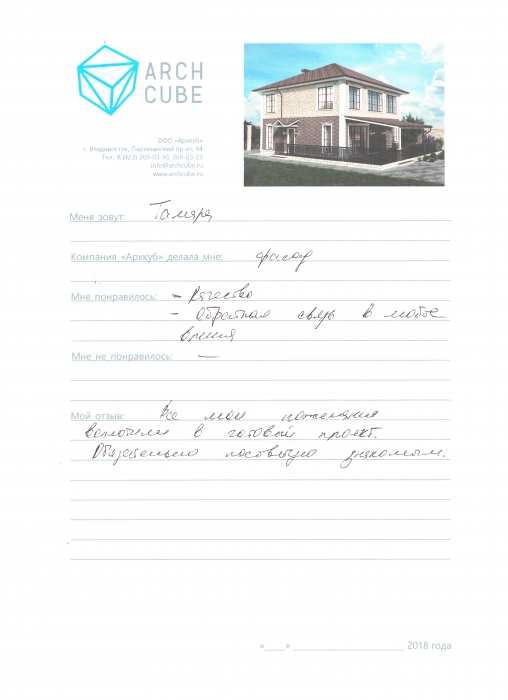 ARCH
CUBE
ООО «Архкуб»
г. Владивосток, Партизанский пр-кт, 44
Тел.: 8 (423) 269-03-93, 269-03-23
info@archcube.ru
www.archcube.ru
Меня зовут: Тамара
Компания «Архкуб» делала мне: фасад
Мне понравилось: – Качество
– Обратная связь в любое
время
Мне не понравилось: —
Мой отзыв: Все мои пожелания
воплотили в готовый проект.
Обязательно посоветую знакомым.
«____» ____________________ 2018 года